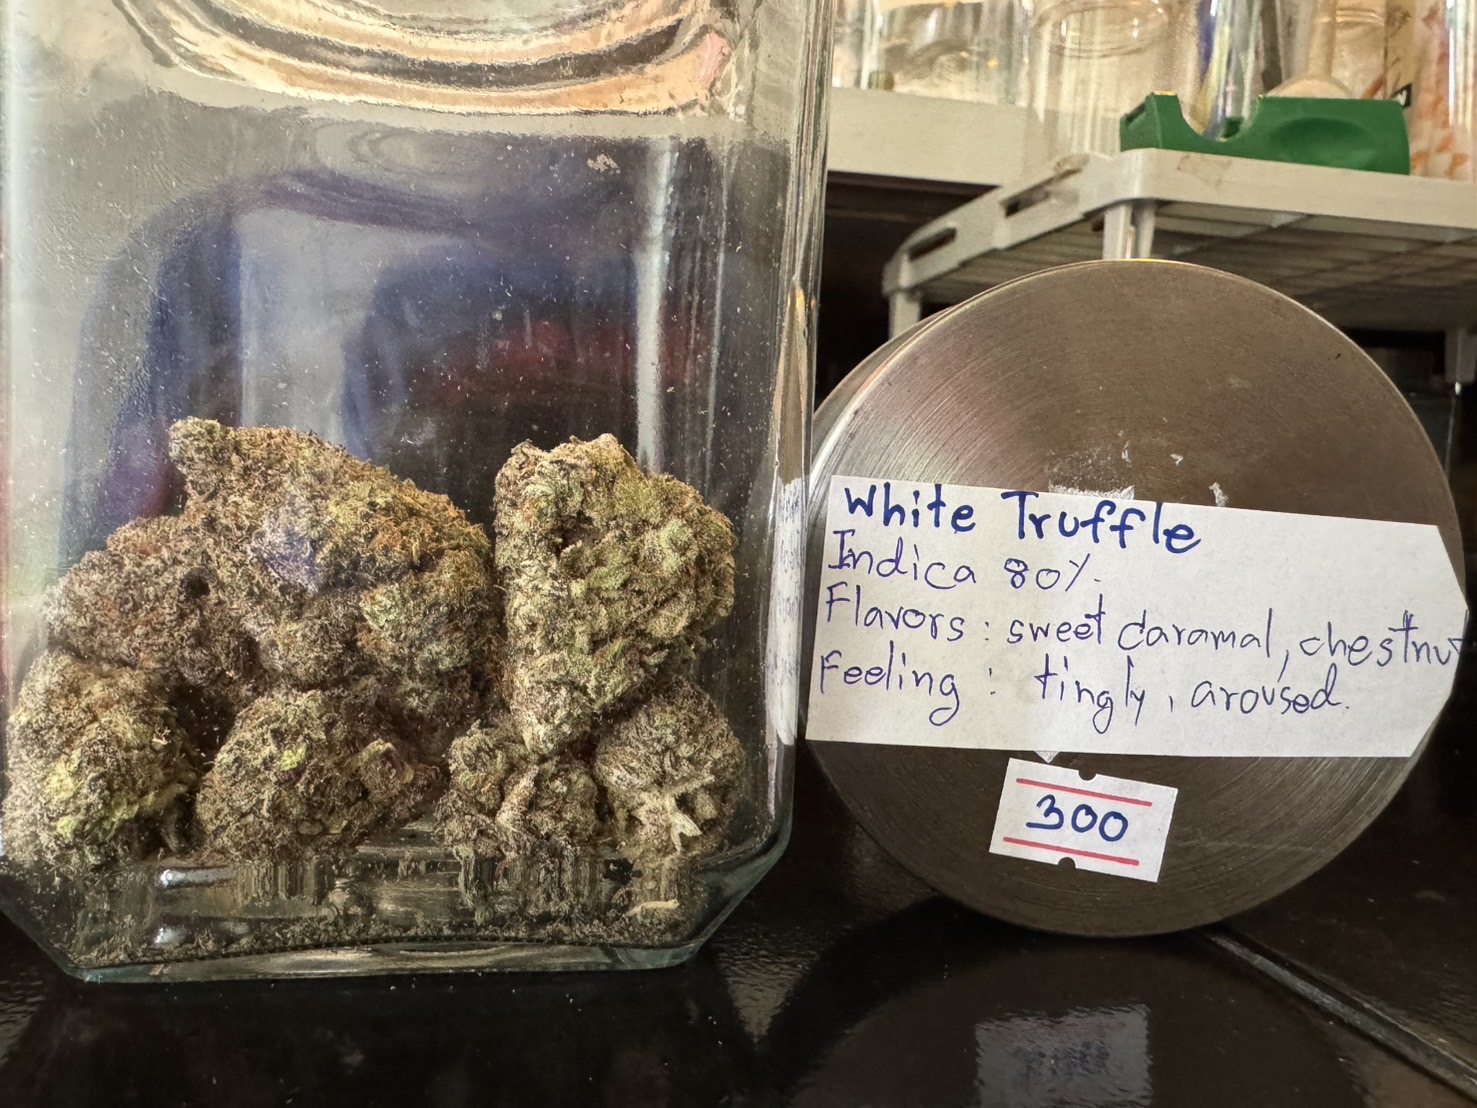 White Truffle
Indica 80%
Flavors : sweet daramal, chestnut
Feeling : tingly, aroused.
300